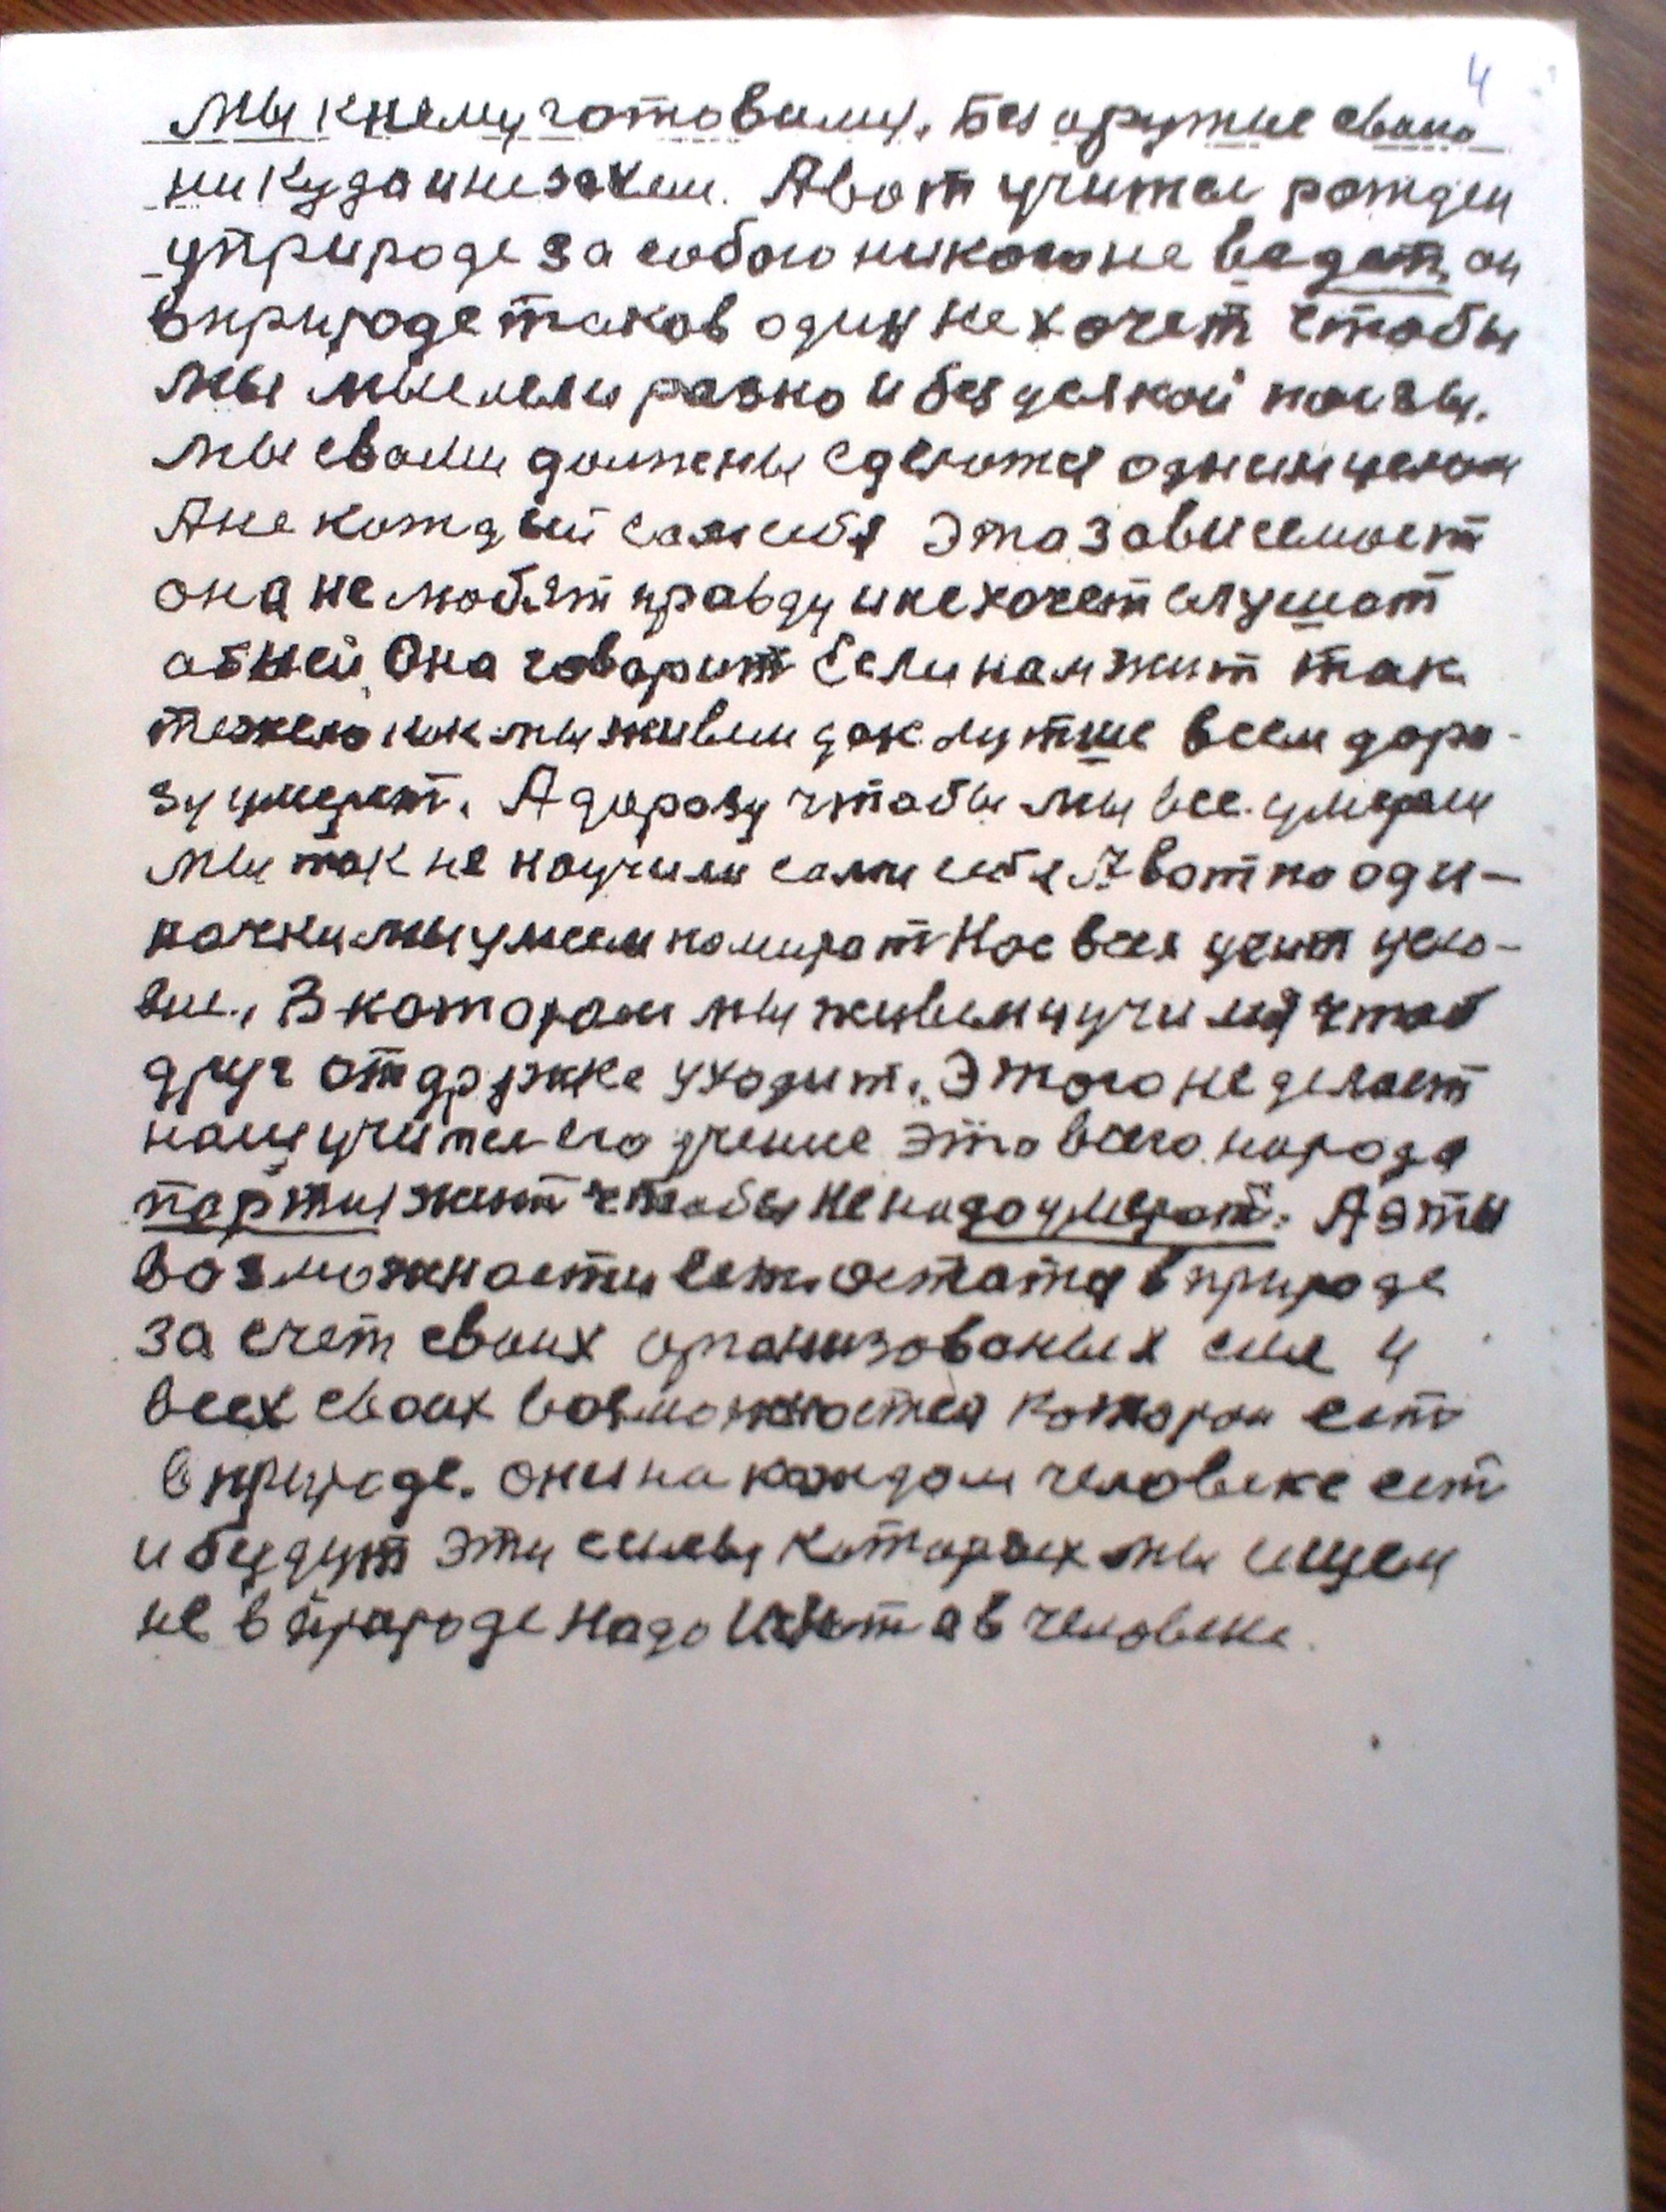 4
Мы к нему готовимы. Без оружие свака
ни куда и не зачем. А вот учител рожден
уприроде за собою никого не ведет, он
в природе таков один не хочет чтобы
мы мыслели разно и без усякой ползы.
мы свами должены сделотся одним целом
А не каждый сам себя Эта зависемост
она не любят правду и не хочет слушат
аб ней. Она говарит Если нам жит так
тежело как мы живем дак лутше всем дора-
зу умерет. А доразу чтобы мы все умерли
мы так не научили сами себя А вот по оди-
ночки мы умеем помират Нас всех учит усло-
вие. В котором мы живем и учимся чтоб
друг от дружке уходит. Этого не делает
наш учител его учение это всего народа
партия жит чтобы не надо умерат. А эти
возможности ест остатся в природе
за счет своих организованых сил и
всех своих возможностей котори ест
в природе. они на каждом человеке ест
и будут эти силы которых мы ищем
не в природе надо искат а в человеке.